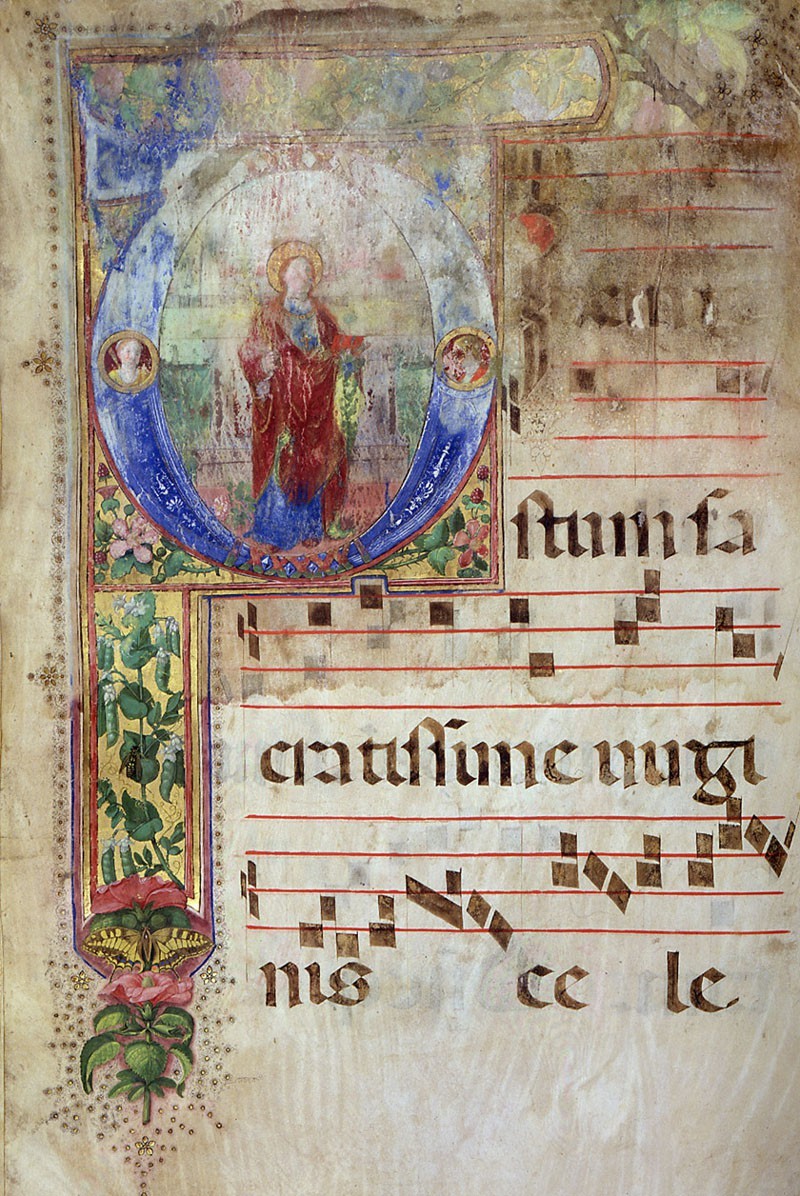 stum sa
cratissime uirgi
nis ce le